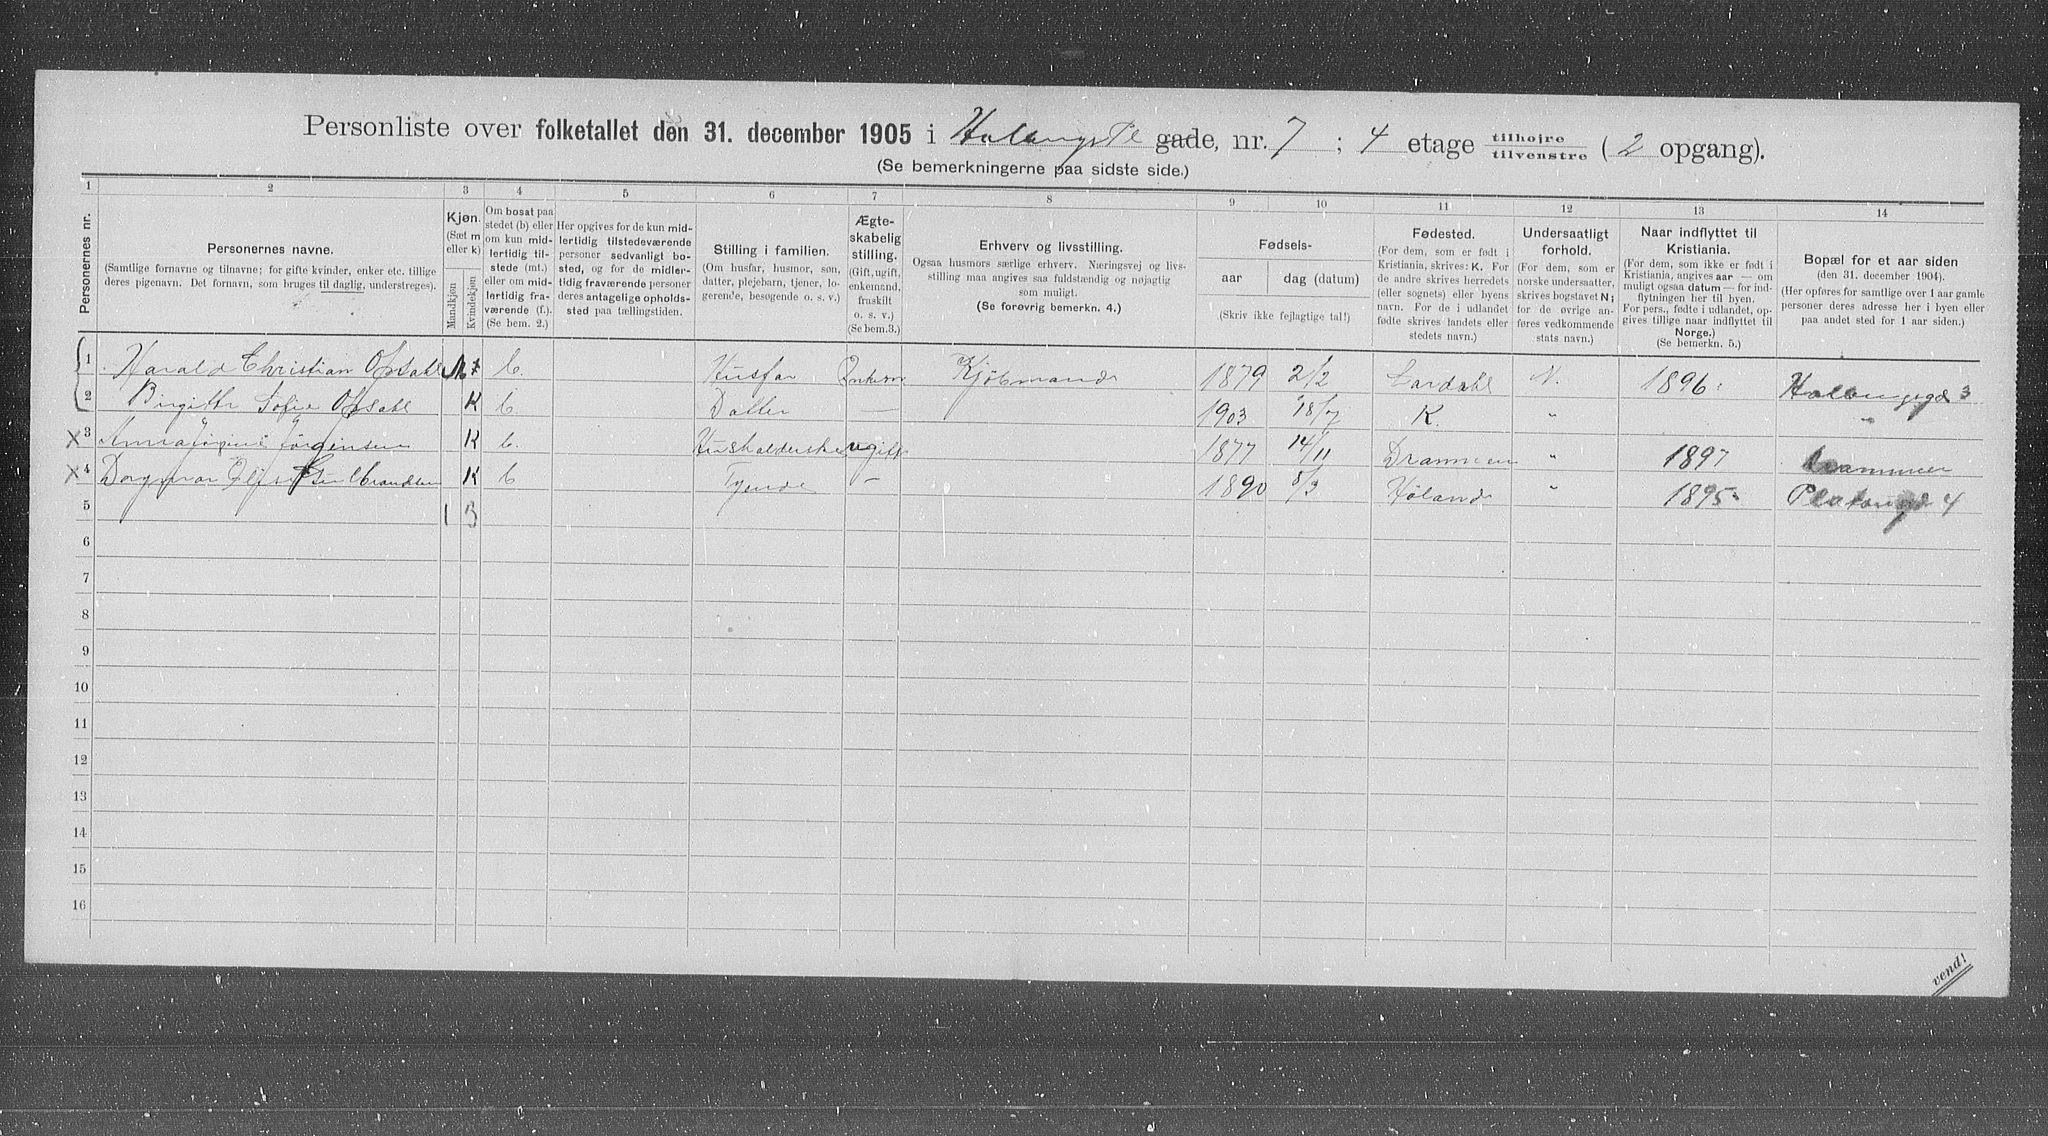 Personliste over folketallet den 31. december 1905 i gade, nr. 7 ; 4 etage tilhøjre tilvenstre ( 2 opgang).
(Se bemerkningerne paa sidste side.)
1 2 3 4 5 6 7 8 9 10 11 12 13 14
Personernes nr.
Personernes navne.
(Samtlige fornavne og tilnavne; for gifte kvinder, enker etc. tillige deres pigenavn. Det fornavn, som bruges til daglig, understreges).
Kjøn. (Sæt m eller k) Mandkjøn Kvindekjøn
Om bosat paa stedet (b) eller om kun midlertidig tilstede (mt.) eller om midlertidig fraværende (f.). (Se bem. 2.)
Her opgives for de kun midlertidig tilstedeværende personer sedvanligt bosted, og for de midlertidig fraværende personer deres antagelige opholdssted paa tællingstiden.
Stilling i familien.
(Om husfar, husmor, søn, datter, plejebarn, tjener, logerende, besøgende o. s. v.)
Ægteskabelig stilling.
(Gift, ugift, enkemand, fraskilt o. s. v.) (Se bem. 3.)
Erhverv og livsstilling.
Ogsaa husmors særlige erhverv. Næringsvej og livsstilling maa angives saa fuldstændig og nøjagtig som muligt.
(Se forøvrig bemerkn. 4.)
Fødsels-
aar dag (datum)
(Skriv ikke fejlagtige tal!)
Fødested.
(For dem, som er født i Kristiania, skrives: K. For de andre skrives herredets (eller sognets) eller byens navn. For de i udlandet fødte skrives landets eller stedets navn.)
Undersaatligt forhold.
(For dem, som er norske undersaatter, skrives bogstavet N; for de øvrige anføres vedkommende stats navn.)
Naar indflyttet til Kristiania.
(For dem, som ikke er født i Kristiania, angives aar — om muligt ogsaa datum — for indflytningen her til byen. For pers., fødte i udlandet, opgives tillige naar indflyttet til Norge.) (Se bemerkn. 5.)
Bopæl for et aar siden
(den 31. december 1904).
(Her opføres for samtlige over 1 aar gamle personer deres adresse her i byen eller paa andet sted for 1 aar siden.)
1 Harald Christian Opsahl M b. Husfar Kjøbmand 1879 2/2 Lardahl N. 1896
2 Birgithe Sofie Opsahl K b. Datter — 1903 18/7 K. " "
3 Jørgensen K b. ugift 1877 14/11 Drammen " 1897 Drammen
4 K b Tjende — 1890 8/3 Høland " 1895 4
5 1 3
6
7
8
9
10
11
12
13
14
15
16
vend!